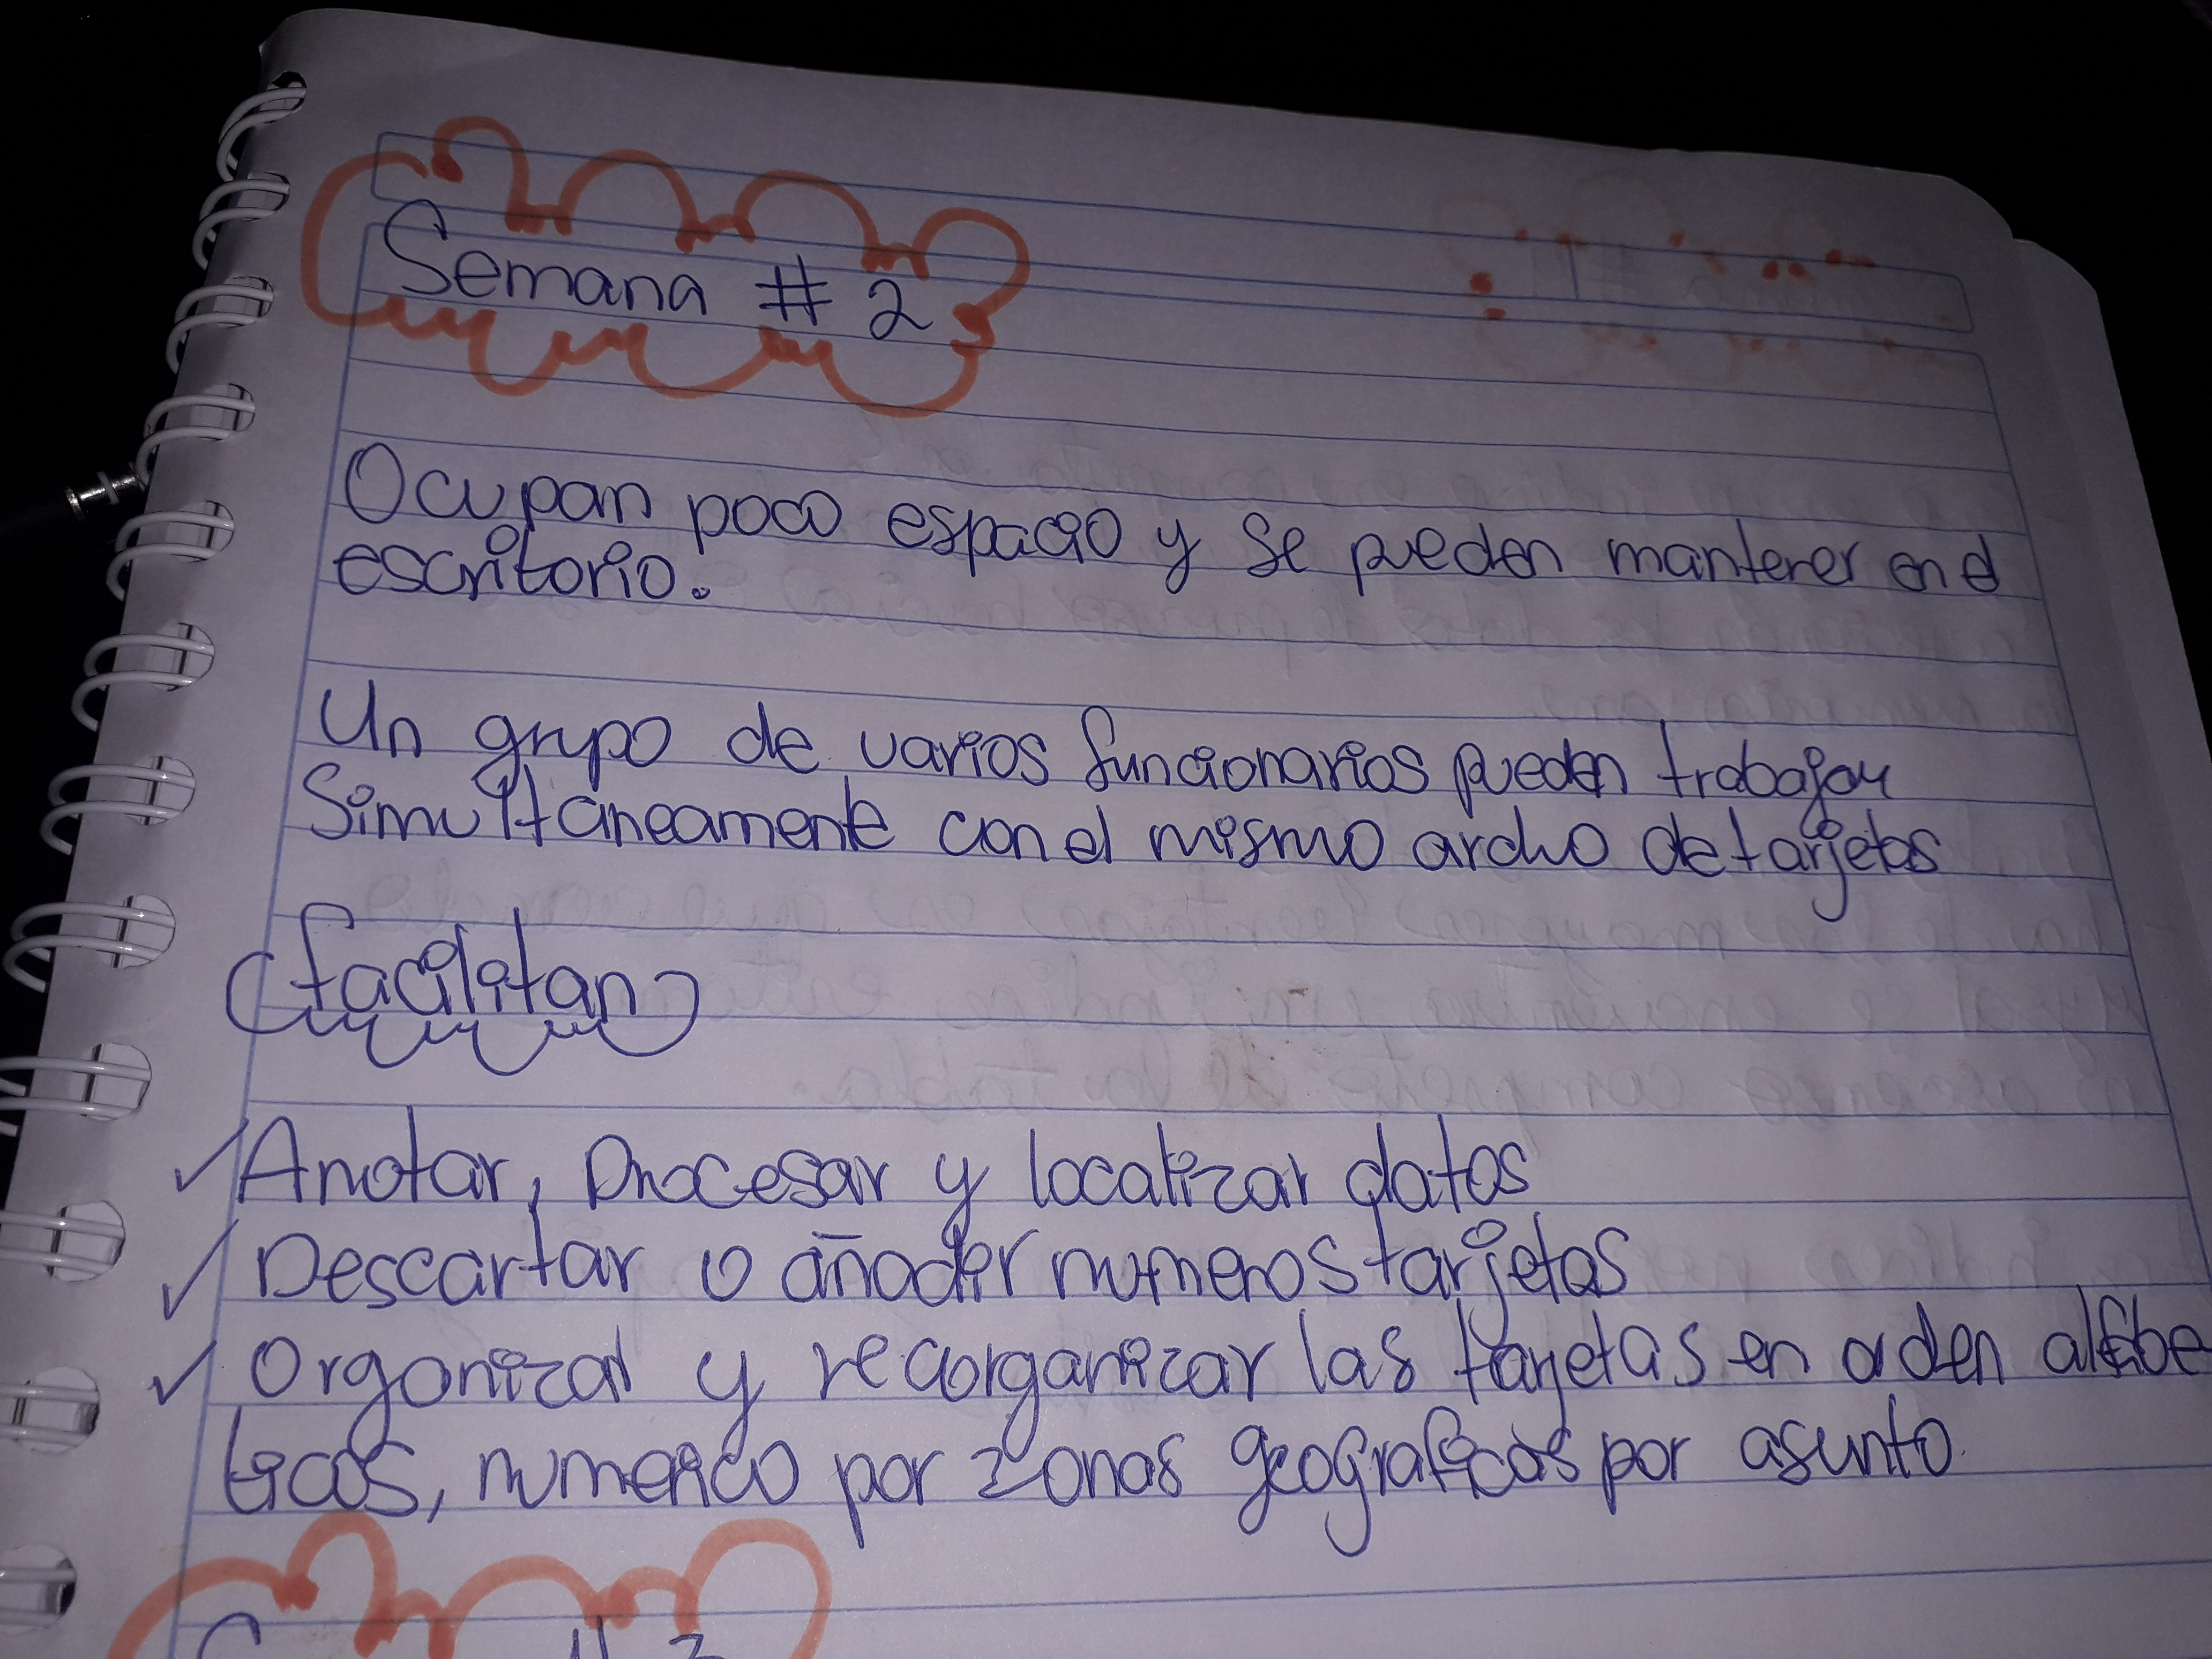 Semana # 2
Ocupan poco espacio y se pueden mantener en el
escritorio.
Un grupo de varios funcionarios pueden trabajar
Simultaneamente con el mismo archo de tarjetas
facilitan
Anotar, procesar y localizar datos
Descartar o añader numeros tarjetas
Organizal y recorganizar las tarjetas en orden alfabe
ticos, numerico por zonas geograficas por asunto.